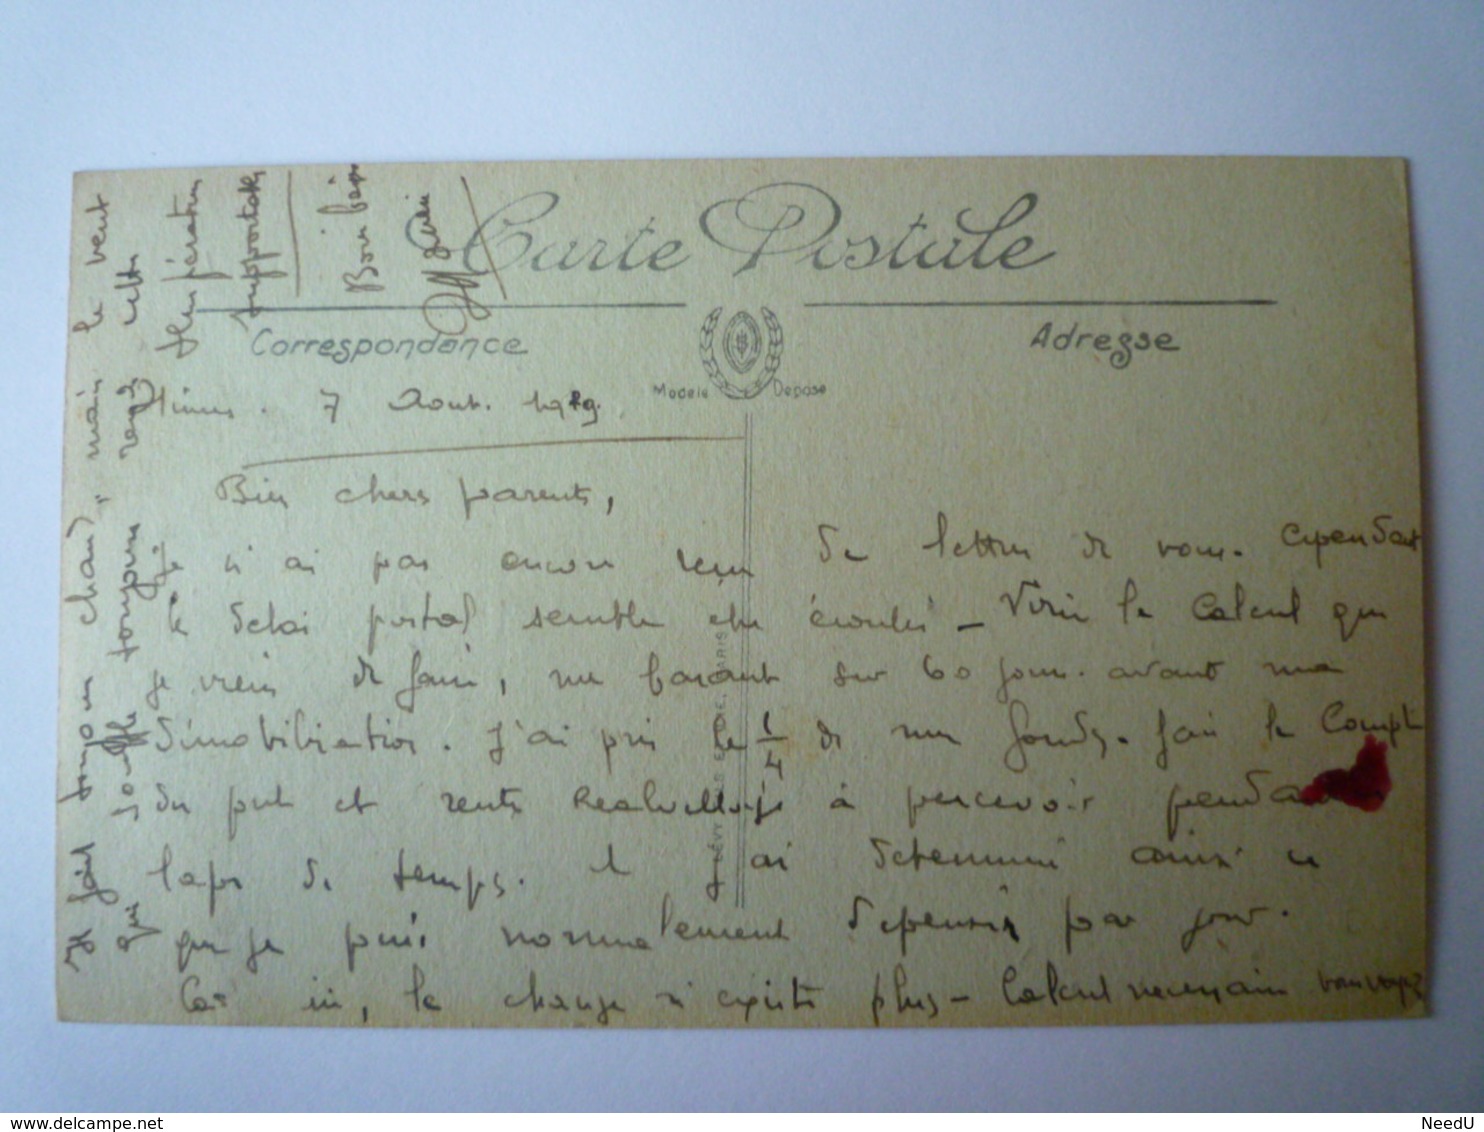 Carte Postale
Correspondance
Adresse
Modele Depose
Nimes. 7 Aout. 1929.
Bien chers parents,
je n'ai pas encore reçu de lettre de vous. Cependant
le délai postal semble être écoulé - Voici le calcul que
je viens de faire, me basant sur 60 jours avant ma
démobilisation. J'ai pris le 1/4 de mes fonds. Fais le compte
du prêt et rente à percevoir pendant
laps de temps. et j'ai déterminé ainsi ce
que je puis normalement dépenser par jour.
Car ici, le change n'existe plus - Calcul nécessaire vous voyez
Il fait toujours chaud, mais le vent
qui souffle toujours rend cette
température
supportable
Bons baisers
LÉVY PARIS
NeedU